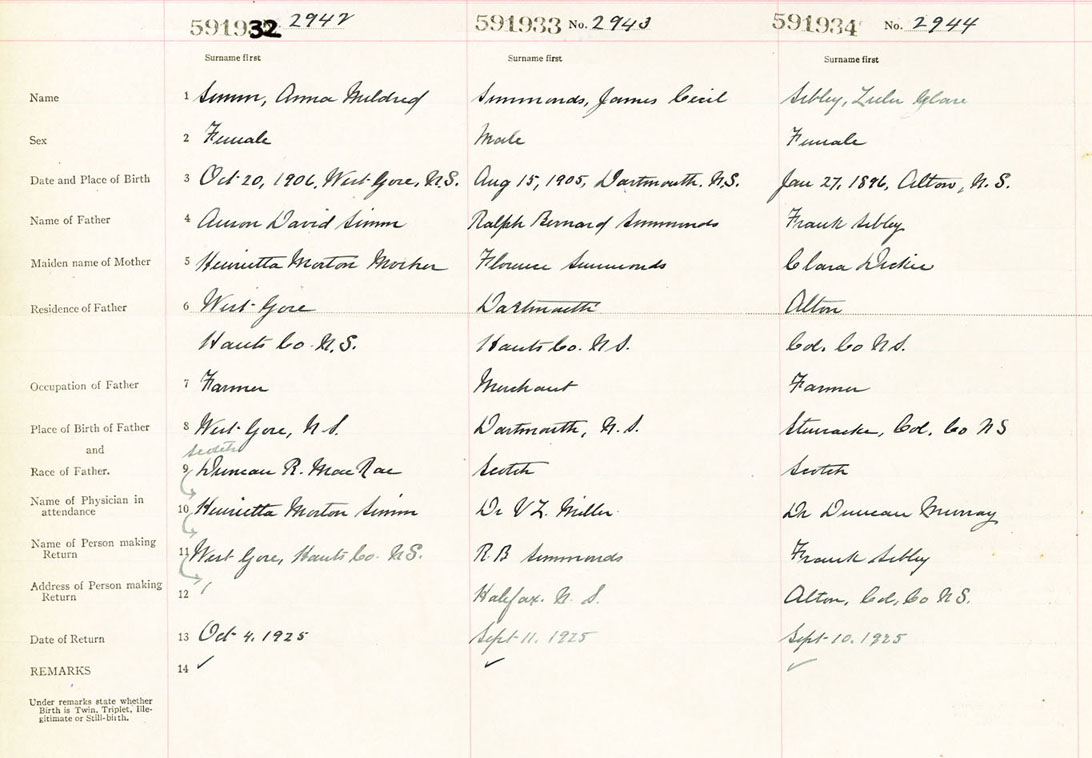 591932 2942 591933 No. 2943 591934 No. 2944
Surname first Surname first Surname first
Name 1 Simm, Anna Mildred Simmonds, James Cecil Sibley, Lulu
Sex 2 Female Male Female
Date and Place of Birth 3 Oct 20, 1906, West Gore, N.S. Aug 15, 1905, Dartmouth, N.S. Jan 27, 1896, Alton, N.S.
Name of Father 4 David Simm Ralph Bernard Simmonds Frank Sibley
Maiden name of Mother 5 Henrietta Morton Florence Simmonds Clara Dickie
Residence of Father 6 West Gore Dartmouth Alton
Hants Co. N.S. Hants Co. N.S. Col. Co N.S.
Occupation of Father 7 Farmer Merchant Farmer
Place of Birth of Father 8 West Gore, N.S. Dartmouth, N.S. Stewiacke, Col. Co N S
and Scotch
Race of Father. 9 Duncan R. MacRae Scotch Scotch
Name of Physician in
attendance 10 Henrietta Morton Simm Dr V Z. Miller Dr Duncan Murray
Name of Person making
Return 11 West Gore, Hants Co. N.S. R B Simmonds Frank Sibley
Address of Person making
Return 12 Halifax. N. S. Alton, Col, Co N.S.
Date of Return 13 Oct 4. 1925 Sept 11. 1925 Sept 10. 1925
REMARKS 14 ✓ ✓ ✓
Under remarks state whether
Birth is Twin, Triplet, Ille-
gitimate or Still-birth.